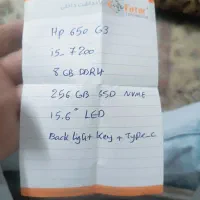 Hp 650 G3
i5_ 7200
8 GB DDR4
256 GB SSD NVME
15.6" LED
Backlight Key + Type_c